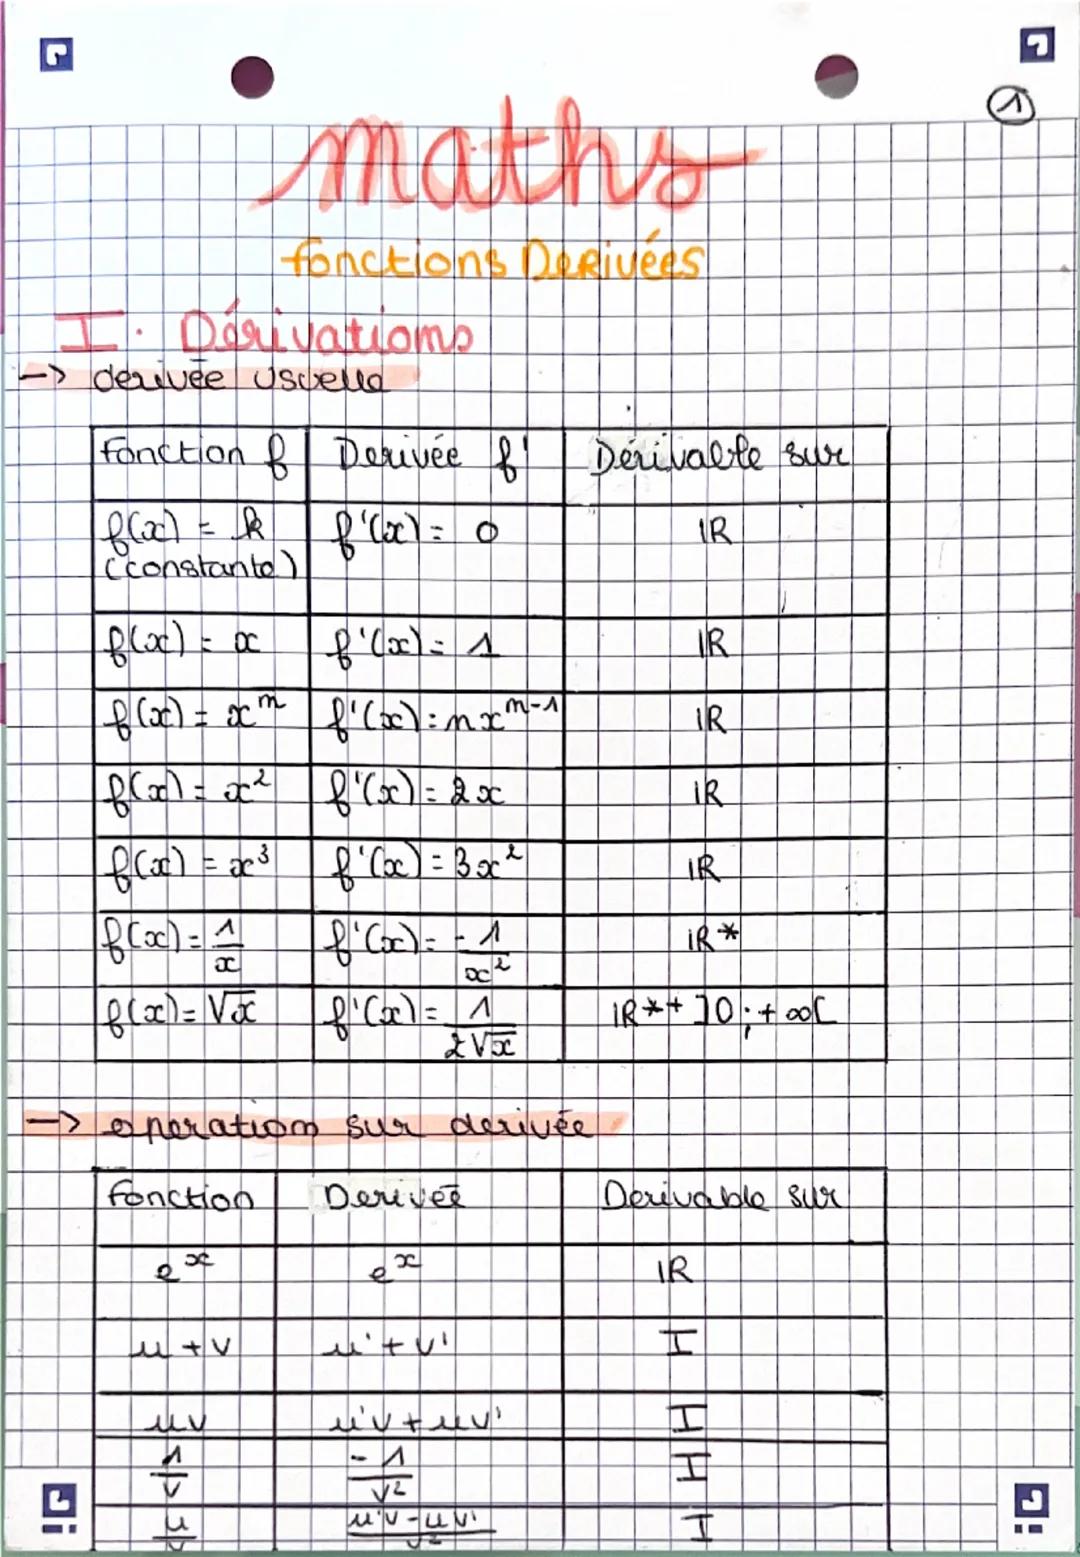 ①
maths
fonctions Derivées
I. Dérivations
-> derivée usuelle
Fonction f | Derivée f' | Dérivable sur
f(x) = k (constante) | f'(x) = 0 | IR
f(x) = x | f'(x) = 1 | IR
f(x) = x^n | f'(x) = nx^{n-1} | IR
f(x) = x² | f'(x) = 2x | IR
f(x) = x³ | f'(x) = 3x² | IR
f(x) = 1/x | f'(x) = -1/x² | IR*
f(x) = √x | f'(x) = 1/(2√x) | IR*+ ]0;+∞[
-> operation sur derivée
fonction | Derivée | Derivable sur
e^x | e^x | IR
u + v | u' + v' | I
uv | u'v + uv' | I
1/v | -1/v² | I
u/v | (u'v - uv')/v² | I